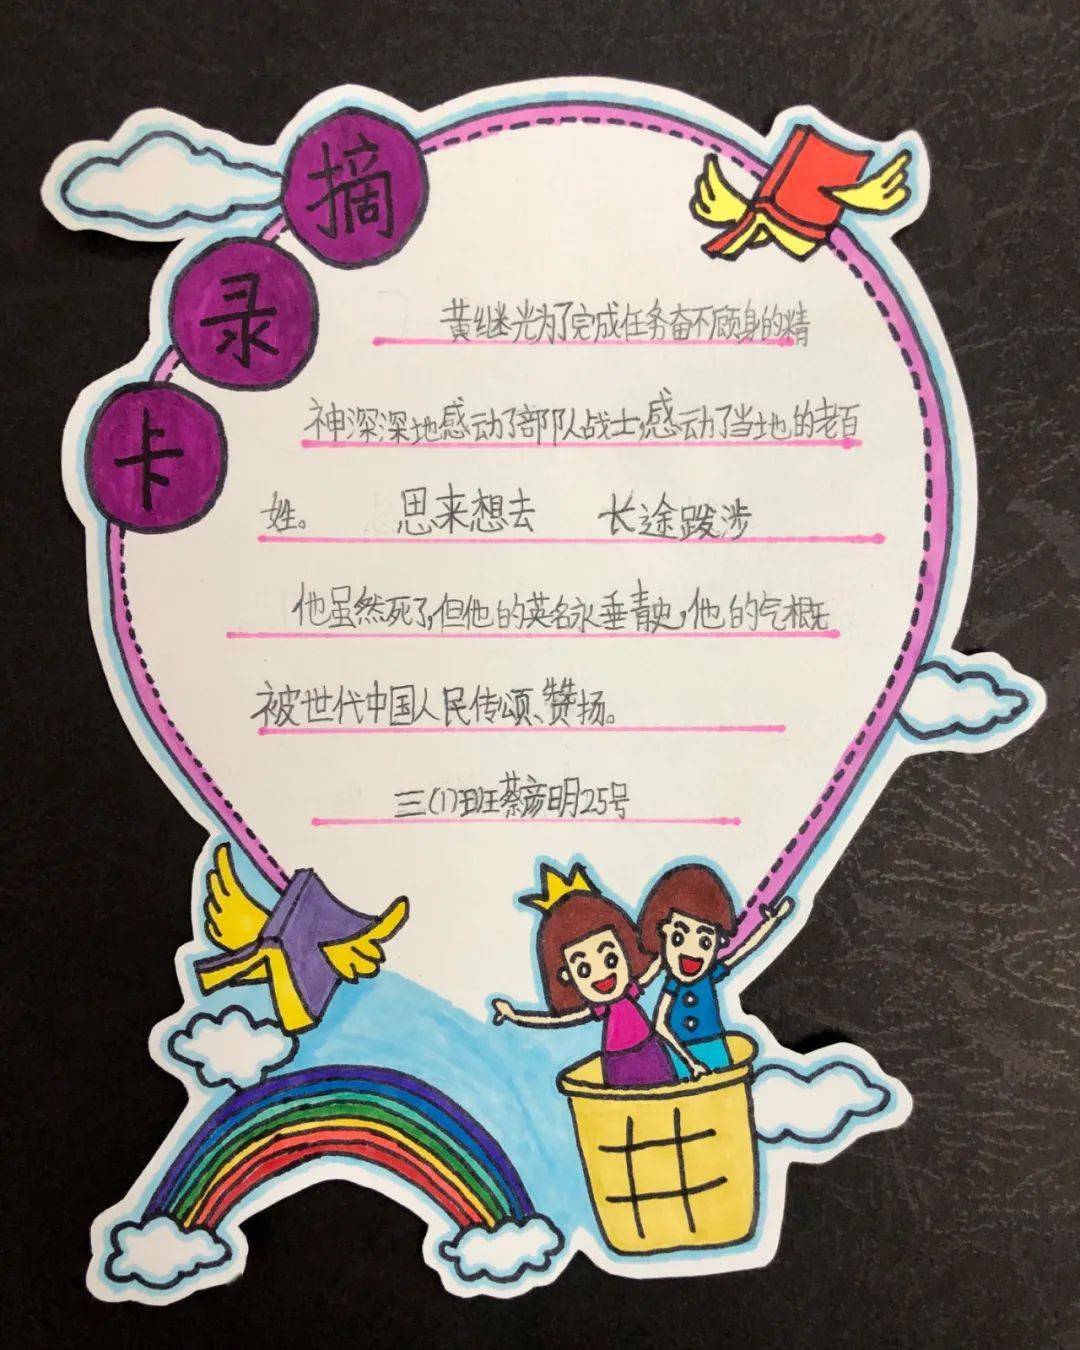 摘录卡
黄继光为了完成任务奋不顾身的精
神深深地感动了部队战士,感动了当地的老百
姓。 思来想去 长途跋涉
他虽然死了,但他的英名永垂青史,他的气概无
被世代中国人民传颂、赞扬。
三(1)班蔡彦明25号